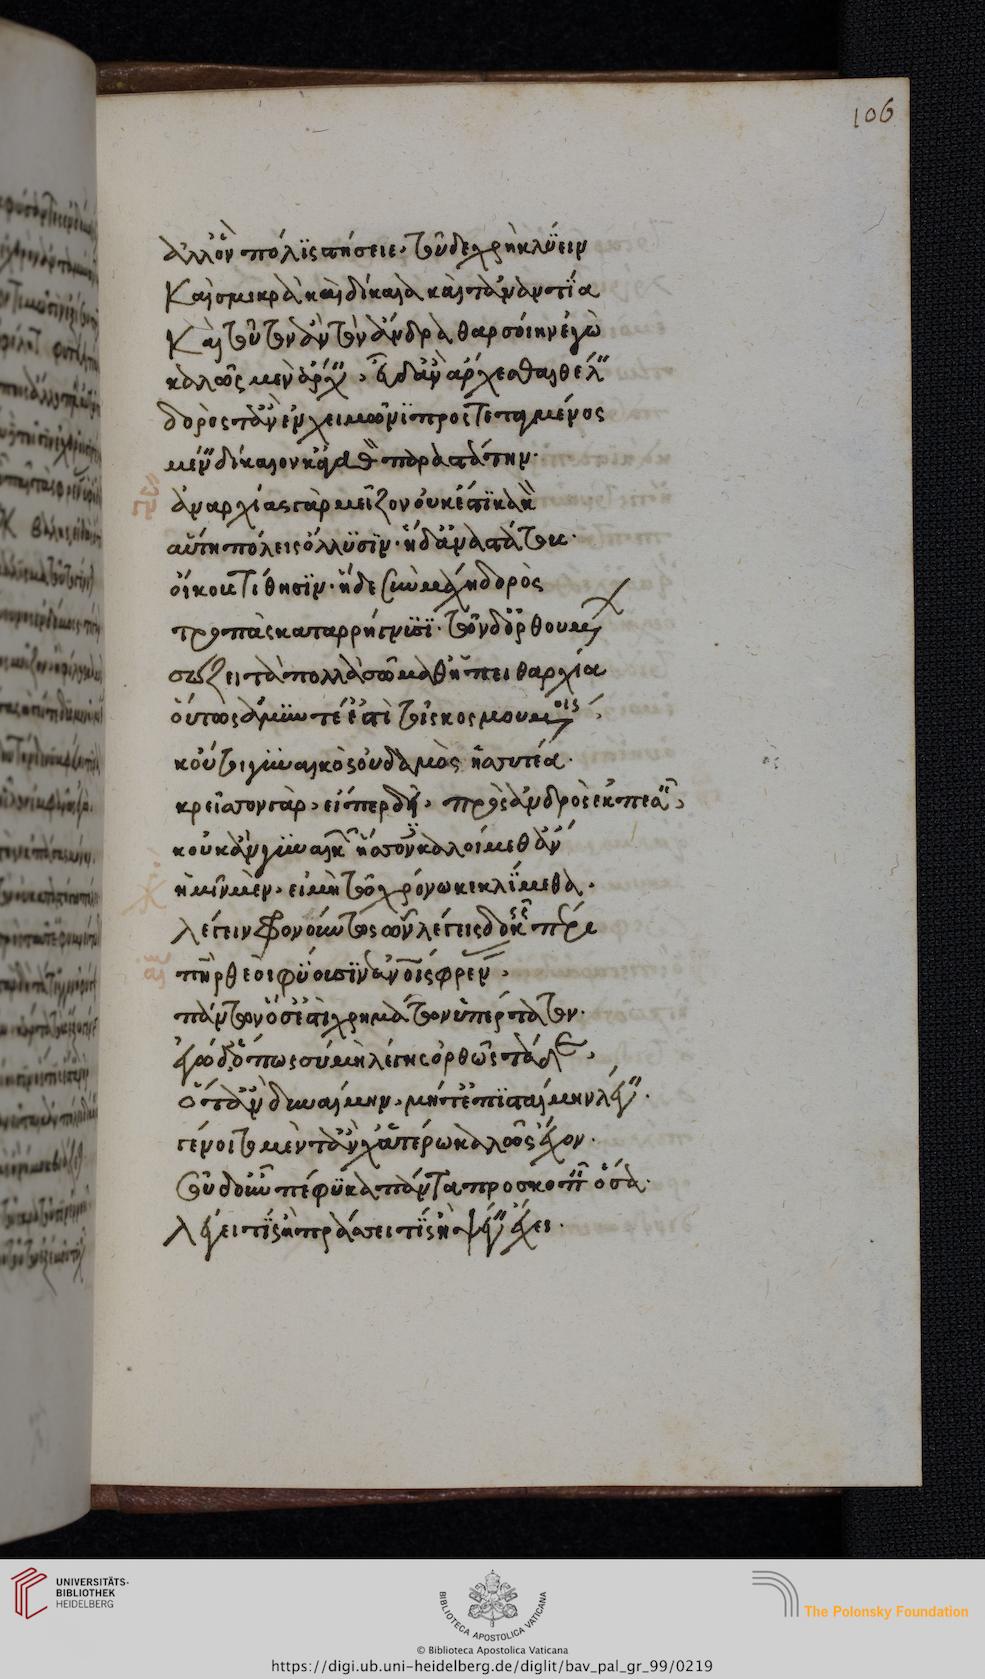 106
ἀλλ' ὃν πόλις στήσειε, τοῦδε χρὴ κλύειν
Καὶ σμικρὰ καὶ δίκαια καὶ τἀναντία
Καὶ τοῦτον ἂν τὸν ἄνδρα θαρσοίην ἐγὼ
καλῶς μὲν ἄρχειν, εὖ δ' ἂν ἄρχεσθαι θέλειν
δορὸς τ' ἂν ἐν χειμῶνι προστεταγμένος
μένειν δίκαιον κἀγαθὸν παραστάτην.
ἀναρχίας γὰρ μεῖζον οὐκ ἔστι κακόν
αὕτη πόλεις ὄλλυσιν. ἡδ' ἀναστάτους.
οἴκους τίθησιν. ἥδε σὺν μάχῃ δορὸς
τροπὰς καταρρήγνυσι. τῶν δ' ὀρθουμένων
σώζει τὰ πολλὰ σώμαθ' ἡ πειθαρχία
οὕτως ἀμυντέ' ἐστὶ τοῖς κοσμουμένοις
κοὔτοι γυναικὸς οὐδαμῶς ἡσσητέα.
κρεῖσσον γὰρ, εἴπερ δεῖ, πρὸς ἀνδρὸς ἐκπεσεῖν,
κοὐκ ἂν γυναικῶν ἥσσονες καλοίμεθ' ἄν
ἡμῖν μὲν, εἰ μὴ τῷ χρόνῳ κεκλίμεθα.
λέγειν φρονούντως ὧν λέγεις δοκεῖς πέρι
πάτερ θεοὶ φύουσιν ἀνθρώποις φρένας,
πάντων ὅσ' ἐστὶ χρημάτων ὑπέρτατον.
ἐγὼ δ' ὅπως σὺ μὴ λέγῃς ὀρθῶς τάδε,
οὔτ' ἂν δυναίμην, μήτ' ἐπισταίμην λέγειν.
γένοιτο μέντ' ἂν χἀτέρῳ καλῶς ἔχον.
σοῦ δ' οὖν πέφυκα πάντα προσκοπεῖν ὅσα.
λέγει τίς ἢ πράσσει τίς ἢ ψέγειν ἔχει.
UNIVERSITÄTS-
BIBLIOTHEK
HEIDELBERG
BIBLIOTECA APOSTOLICA VATICANA
© Biblioteca Apostolica Vaticana
The Polonsky Foundation
https://digi.ub.uni-heidelberg.de/diglit/bav_pal_gr_99/0219